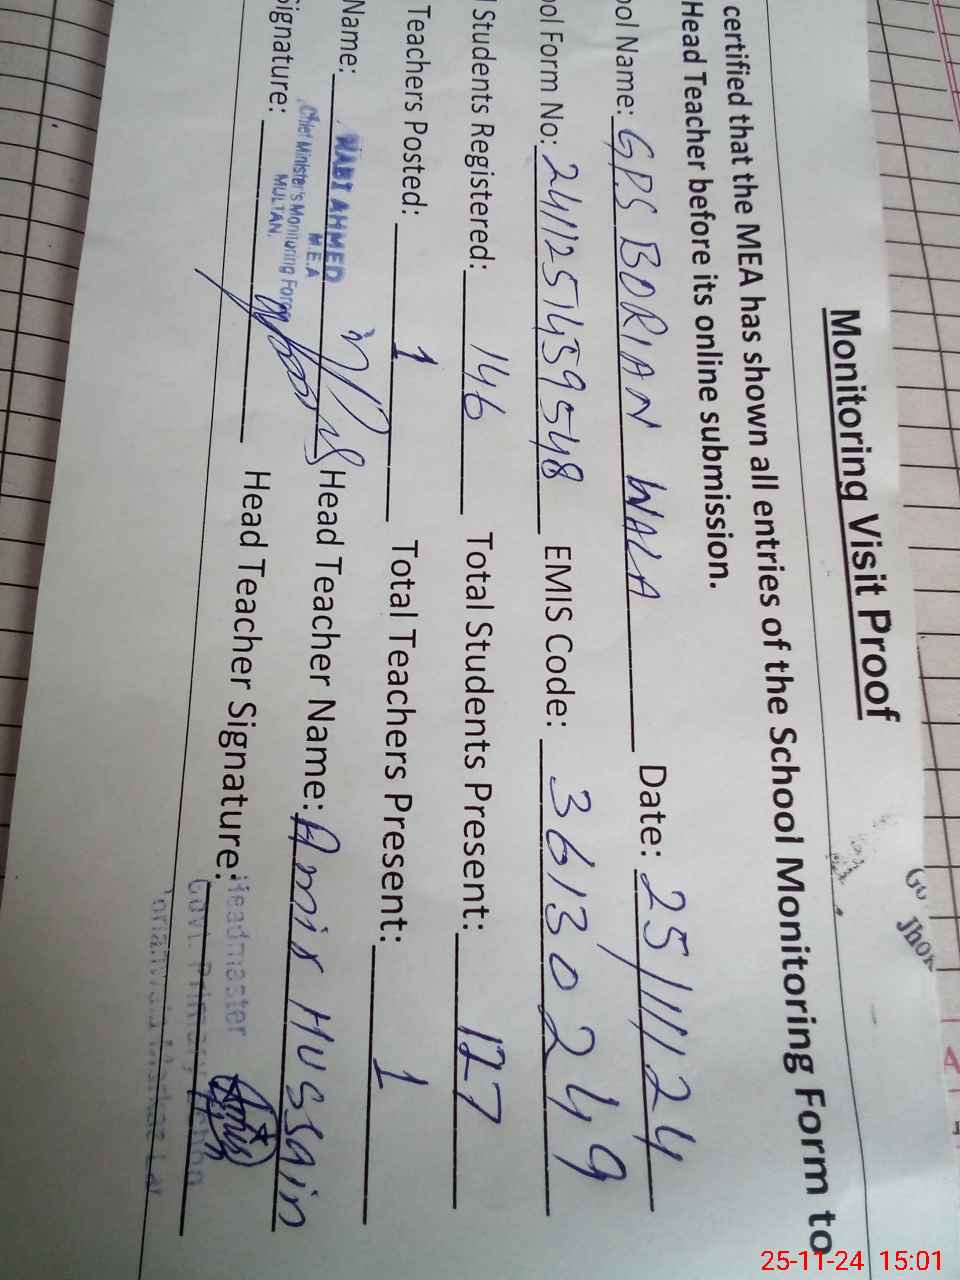 Monitoring Visit Proof
certified that the MEA has shown all entries of the School Monitoring Form to
Head Teacher before its online submission.
ool Name: GPS BORIAN WALA Date: 25/11/24
ool Form No: 241125145959548 EMIS Code: 36130249
Students Registered: 146 Total Students Present: 127
Teachers Posted: 1 Total Teachers Present: 1
Name: Head Teacher Name: Amir Hussain
Signature: Head Teacher Signature:
AHMED
M.E.A
Chief Minister's Monitoring Force
MULTAN.
Headmaster
Govt. Primary
25-11-24 15:01